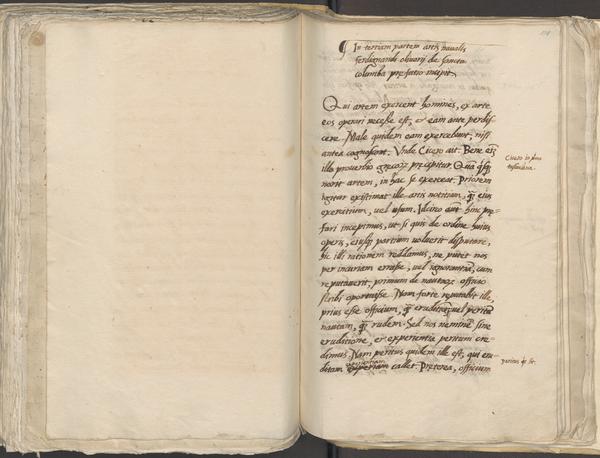 ¶ In tertiam partem artis naualis
ferdinandi oliuerij de sancta
columba prefatio incipit
Qui artem exercent homines, ex arte
eos operari necesse est, et eam ante perdis-
cere. Male quidem eam exercebunt, nisi
antea cognoscant. Vnde Cicero ait. Bene
illo prouerbio grecorum precipitur. Quam quisque
norit artem, in hac se exerceat. Priorem
igitur existimat ille artis notitiam, quam eius
exercitium, uel usum. Idcirco autem hinc pre-
fari incepimus, ut si quis de ordine huius
operis, eiusque partium uoluerit disputare,
hic illi rationem reddamus, ne putet nos
per incuriam errasse, uel ignorantiam, cum
reputauerit, primum de nautarum officio
scribi oportuisse. Nam forte reputabit ille,
prius esse officium, quam eruditum uel peritum
nautam, quam rudem. Sed nos neminem sine
eruditione, et experientia peritum cre-
dimus. Nam peritus quidem ille est, qui eru-
ditam experientiam callet. Preterea, officium
Cicero in prima
tusculana.
peritus quis sit.